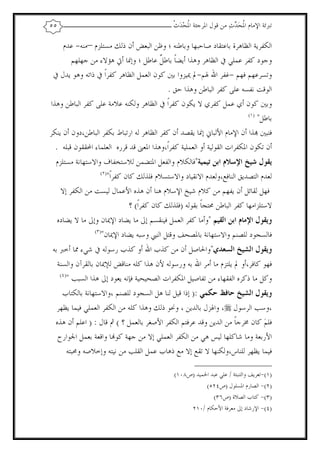 تبرئة الإمام المُحَدِّث من قول المرجئة المُحْدَث ٥٥
الكفرية الظاهرة باعتقاد صاحبها وباطنه ؛ وظن البعض أن ذلك مستلزم –منه- عدم
وجود كفر عملي في الظاهر وهذا أيضاً باطلٌ عاطل ؛ وإنما أتي هؤلاء من جهلهم
وتسرعهم فهم –غفر الله لهم- لم يميزوا بين كون العمل الظاهر كفراً في ذاته وهو يدل في
الوقت نفسه على كفر الباطن وهذا حق .
وبين كون أي عمل كفري لا يكون كفراً في الظاهر ولكنه علامة على كفر الباطن وهذا
باطل" (١)
فتبين بهذا أن الإمام الألباني إنما يقصد أن كفر الظاهر له ارتباط بكفر الباطن،دون أن ينكر
أن تكون المكفرات القولية أو العملية كفراً،وهذا المعنى قد قرره العلماء المحققون قبله .
يقول شيخ الإسلام ابن تيمية"فالكلام والفعل المتضمن للاستخفاف والاستهانة مستلزم
لعدم التصديق النافع،ولعدم الانقياد والاستسلام فلذلك كان كفراً"(٢)
فهل لقائل أن يفهم من كلام شيخ الإسلام هنا أن هذه الأعمال ليست من الكفر إلا
لاستلزامها كفر الباطن محتجاً بقوله (فلذلك كان كفراً) ؟
ويقول الإمام ابن القيم "وأما كفر العمل فينقسم إلى ما يضاد الإيمان وإلى ما لا يضاده
فالسجود للصنم والاستهانة بالمصحف وقتل النبي وسبه يضاد الإيمان"(٣)
ويقول الشيخ السعدي"والحاصل أن من كذب الله أو كذب رسوله في شيء مما أخبر به
فهو كافر،أو لم يلتزم ما أمر الله به ورسوله لأن هذا كله مناقض للإيمان بالقرآن والسنة
وكل ما ذكره الفقهاء من تفاصيل المكفرات الصحيحة فإنه يعود إلى هذا السبب "(٤)
ويقول الشيخ حافظ حكمي :( إذا قيل لنا هل السجود للصنم ،والاستهانة بالكتاب
،وسب الرسول ﷺ، والهزل بالدين ، ونحو ذلك وهذا كله من الكفر العملي فيما يظهر
فلم كان مخرجاً من الدين وقد عرفتم الكفر الأصغر بالعمل ؟ ) ثم قال : ( اعلم أن هذه
الأربعة وما شاكلها ليس هي من الكفر العملي إلا من جهة كونها واقعة بعمل الجوارح
فيما يظهر للناس،ولكنها لا تقع إلا مع ذهاب عمل القلب من نيته وإخلاصه ومحبته
(١)-تعريف والتنبئة / علي عبد الحميد (ص٨٠)
(٢)- الصارم المسلول (ص٥٢٤)
(٣)- كتاب الصلاة (ص٣٦)
(٤)- الإرشاد إلى معرفة الأحكام /٢١٠